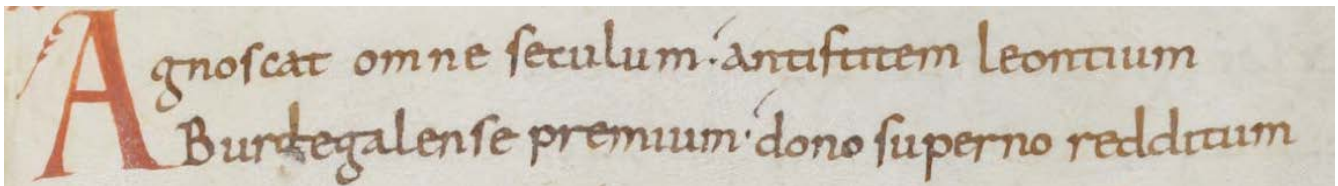 Agnoscat omne seculum· antistitem leontium
Burdegalense premium· dono superno redditum